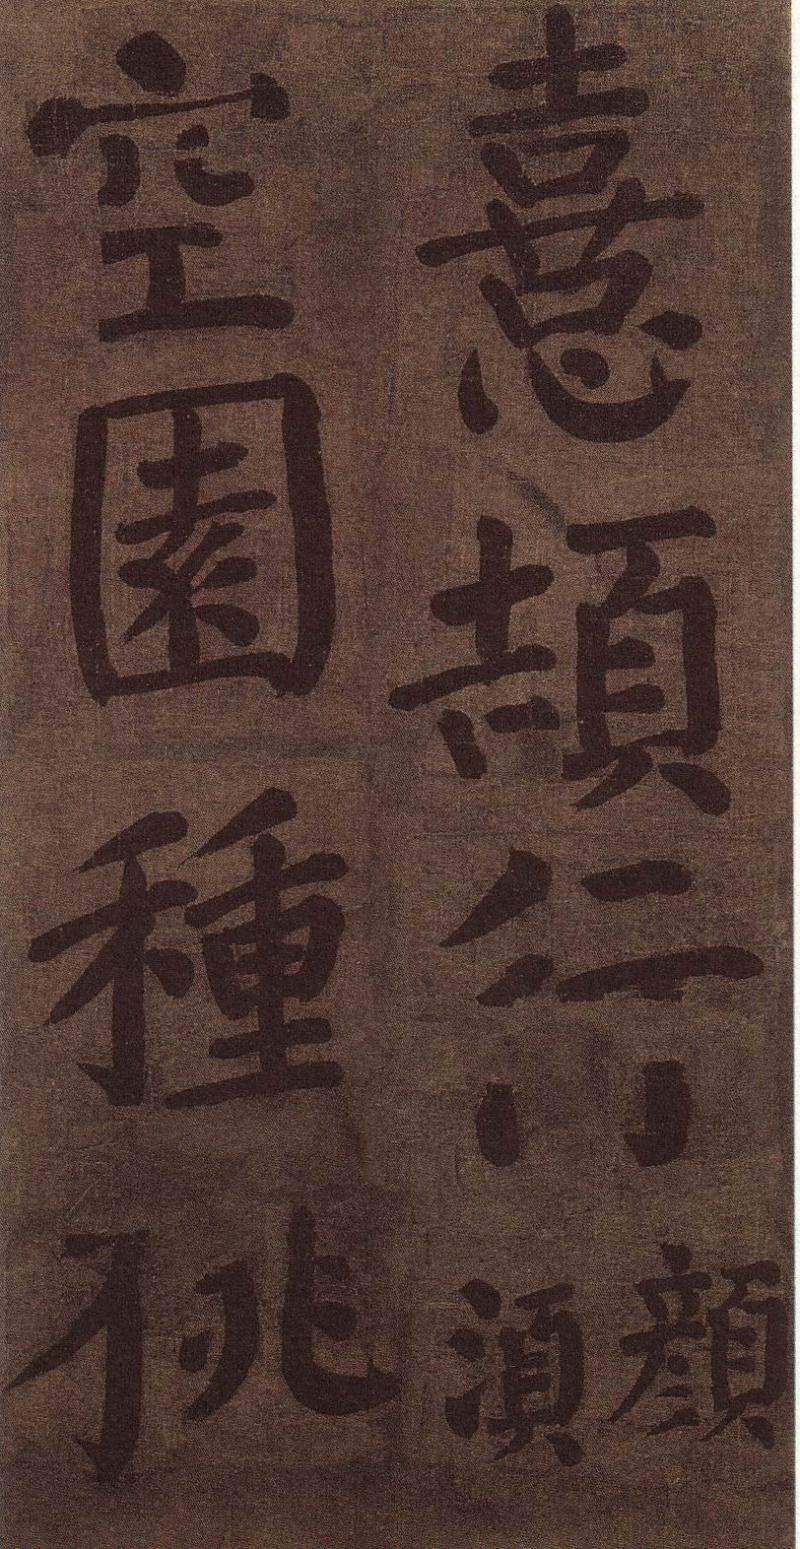 憙頡行顏須
空園種桃